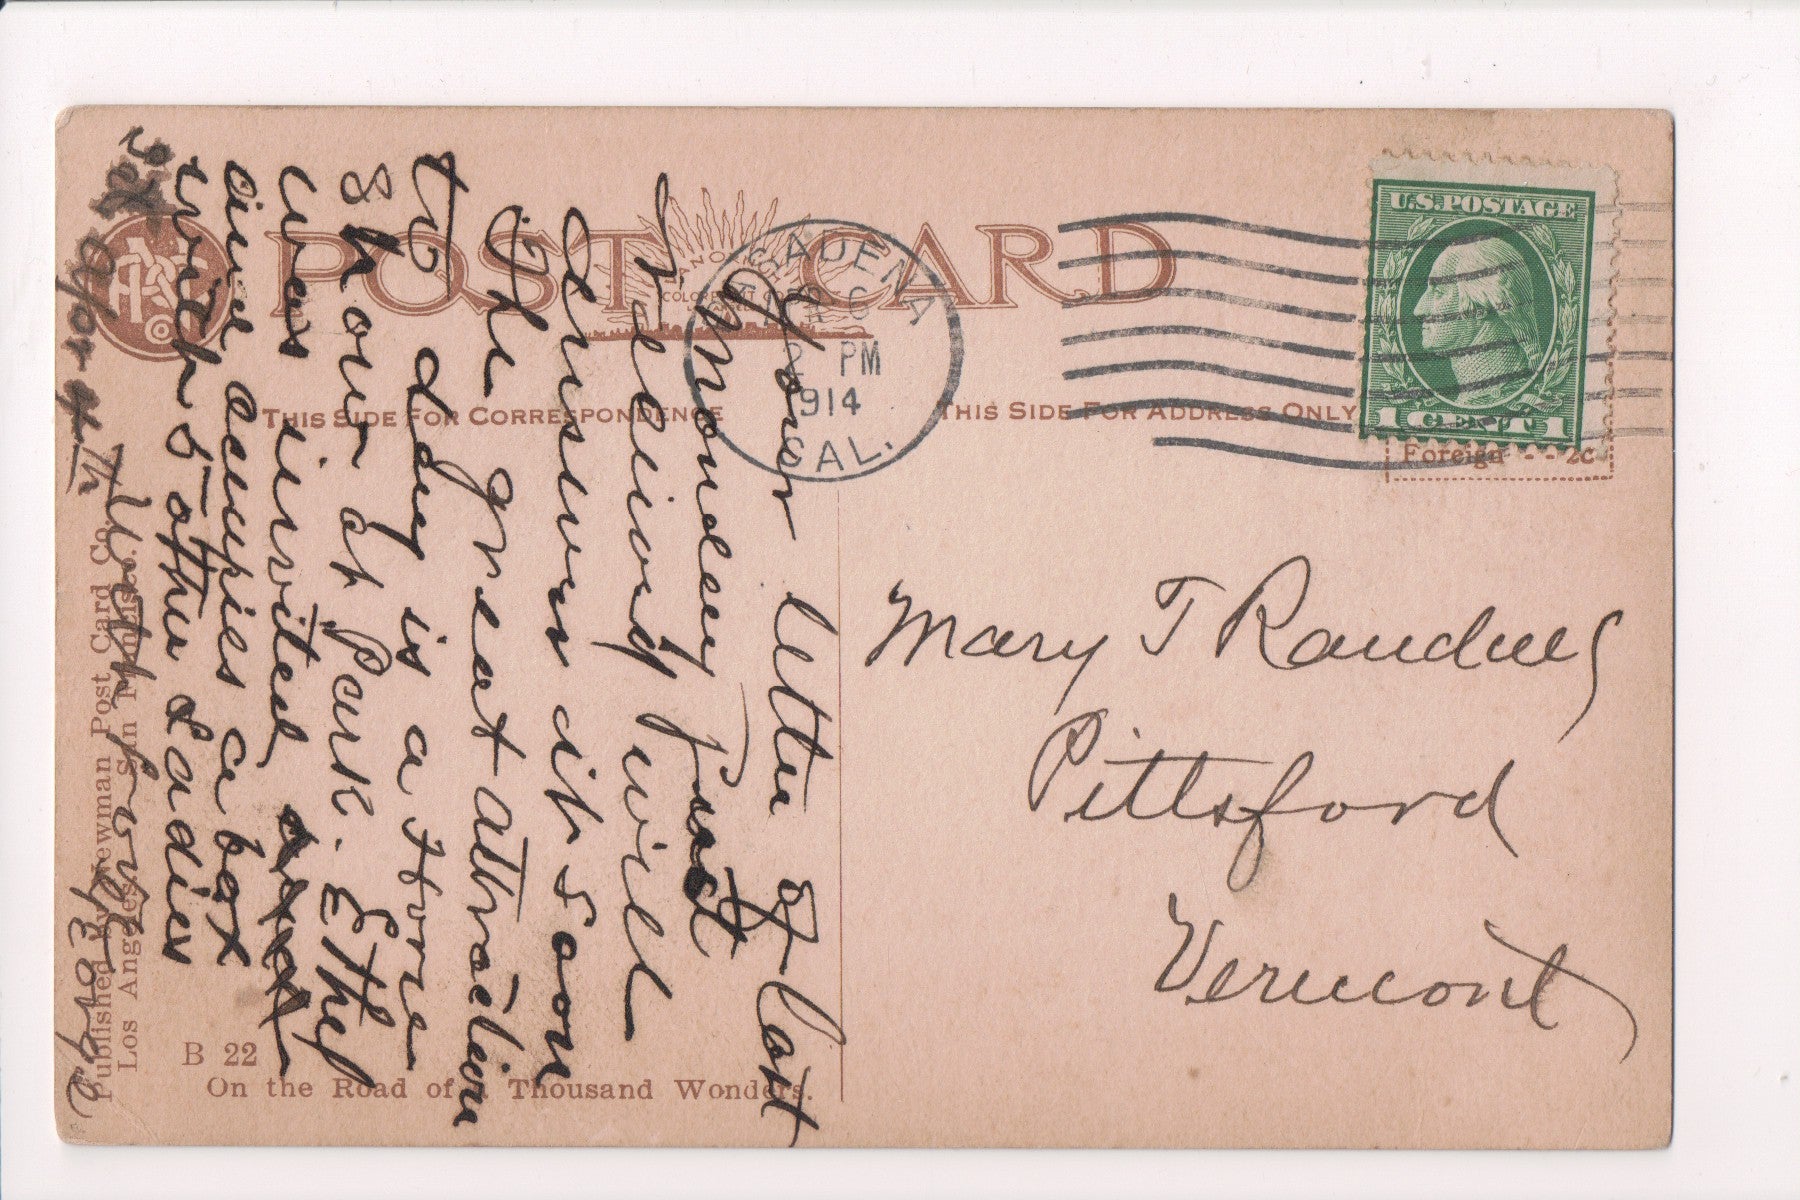 POST CARD
THIS SIDE FOR CORRESPONDENCE
THIS SIDE FOR ADDRESS ONLY
PASADENA
2 PM
1914
CAL.
U.S. POSTAGE
1 CENT 1
Foreign - - 2c
Your letter of last
Monday just
received will
answer it soon
The great attraction
to day is a Horse
Show at Park. Ethel
was invited
and occupies a box
with 5 other Ladies
With love
Mary T Randall
Pittsford
Vermont
B 22
On the Road of a Thousand Wonders.
Published by Newman Post Card Co.
Los Angeles, San Francisco.